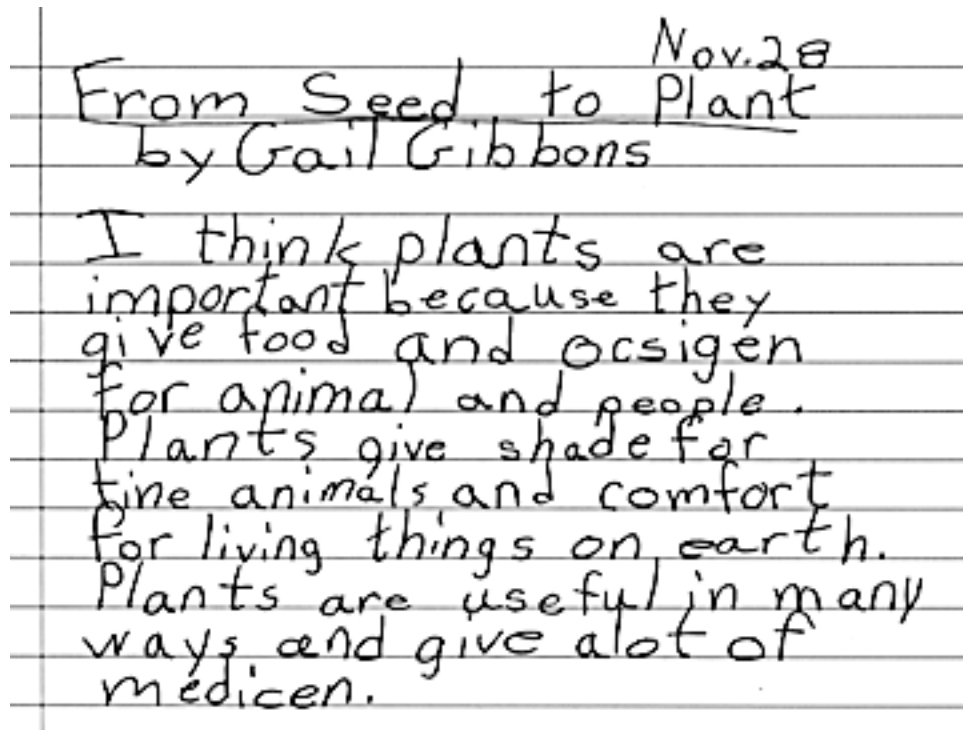 Nov. 28
From Seed to Plant
by Gail Gibbons
I think plants are
important because they
give food and ocsigen
for animal and people.
Plants give shade for
tine animals and comfort
for living things on earth.
Plants are useful in many
ways and give alot of
medicen.